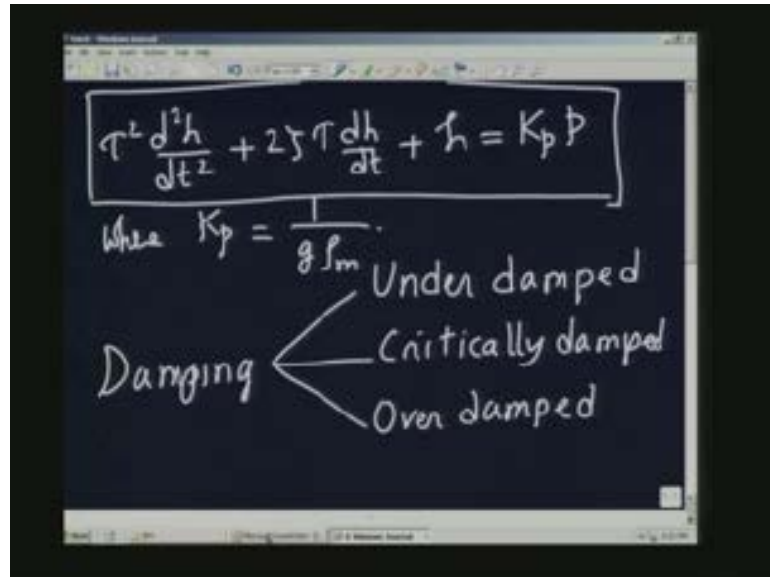 τ² d²h/dt² + 2ζτ dh/dt + h = Kp p
where Kp = 1/(g ρm).
Damping
Under damped
Critically damped
Over damped